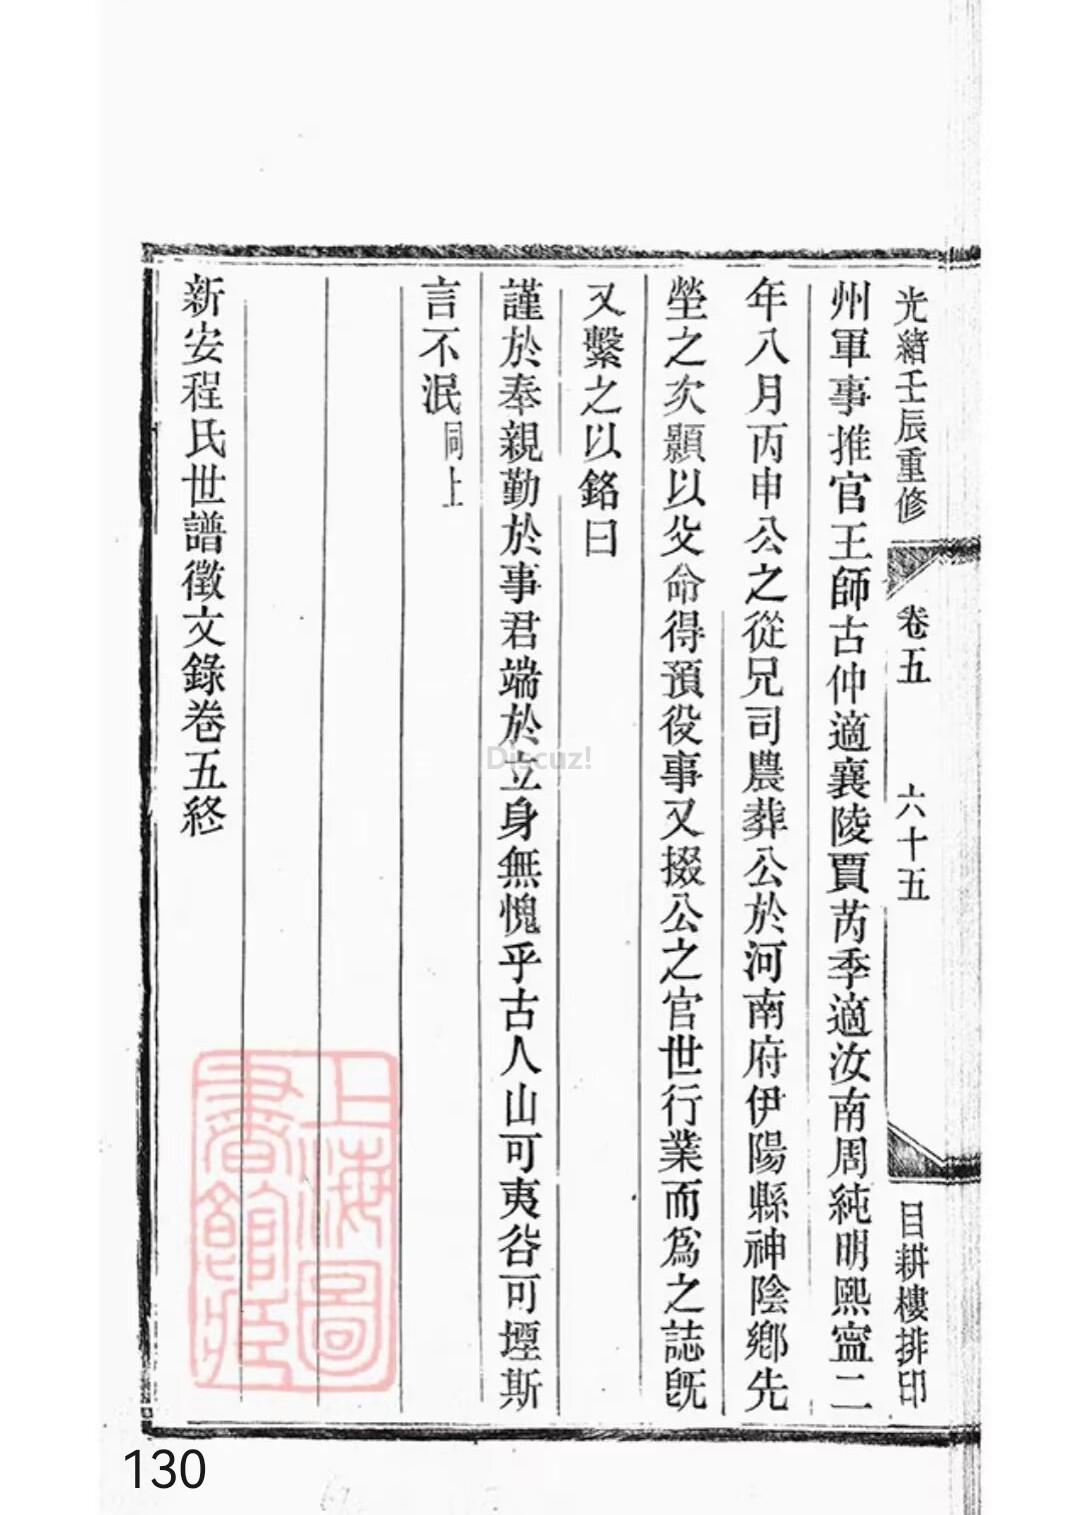 光緒壬辰重修
卷五
六十五
目耕樓排印
州軍事推官王師古仲適襄陵賈芮季適汝南周純明熙寍二
年八月丙申公之從兄司農葬公於河南府伊陽縣神陰鄉先
塋之次顥以父命得預役事又掇公之官世行業而爲之誌旣
又繫之以銘曰
謹於奉親勤於事君端於立身無愧乎古人山可夷谷可堙斯
言不泯同上
新安程氏世譜徵文錄卷五終
上海圖
書館藏
Discuz!
130